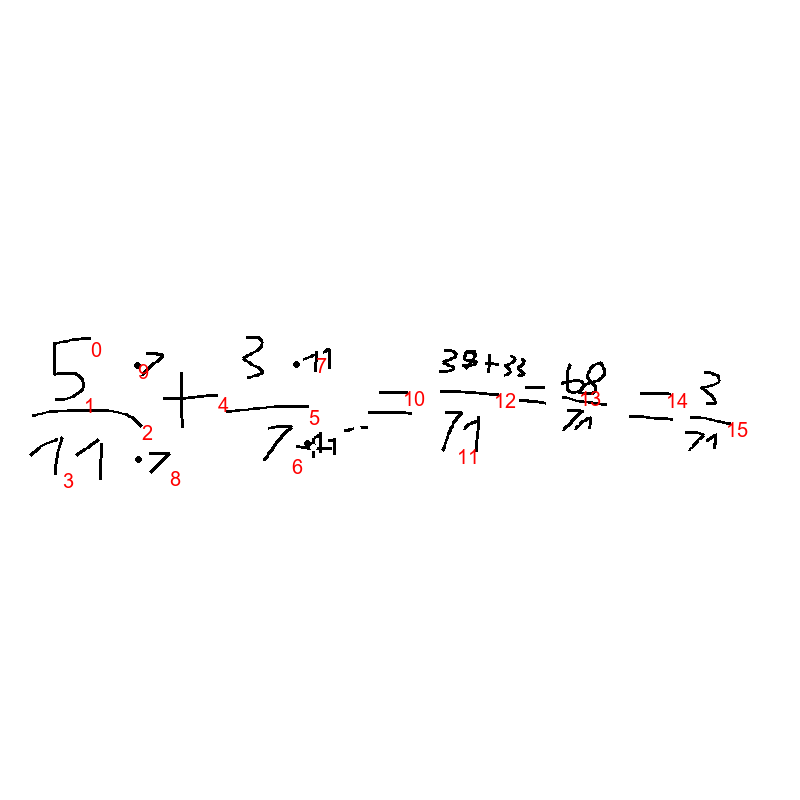 5 · 7 / 11 · 7 + 3 · 11 / 7 · 11 = 38 + 33 / 71 = 68 / 71 = 3 / 71
0 1 2 3 4 5 6 7 8 9 10 11 12 13 14 15